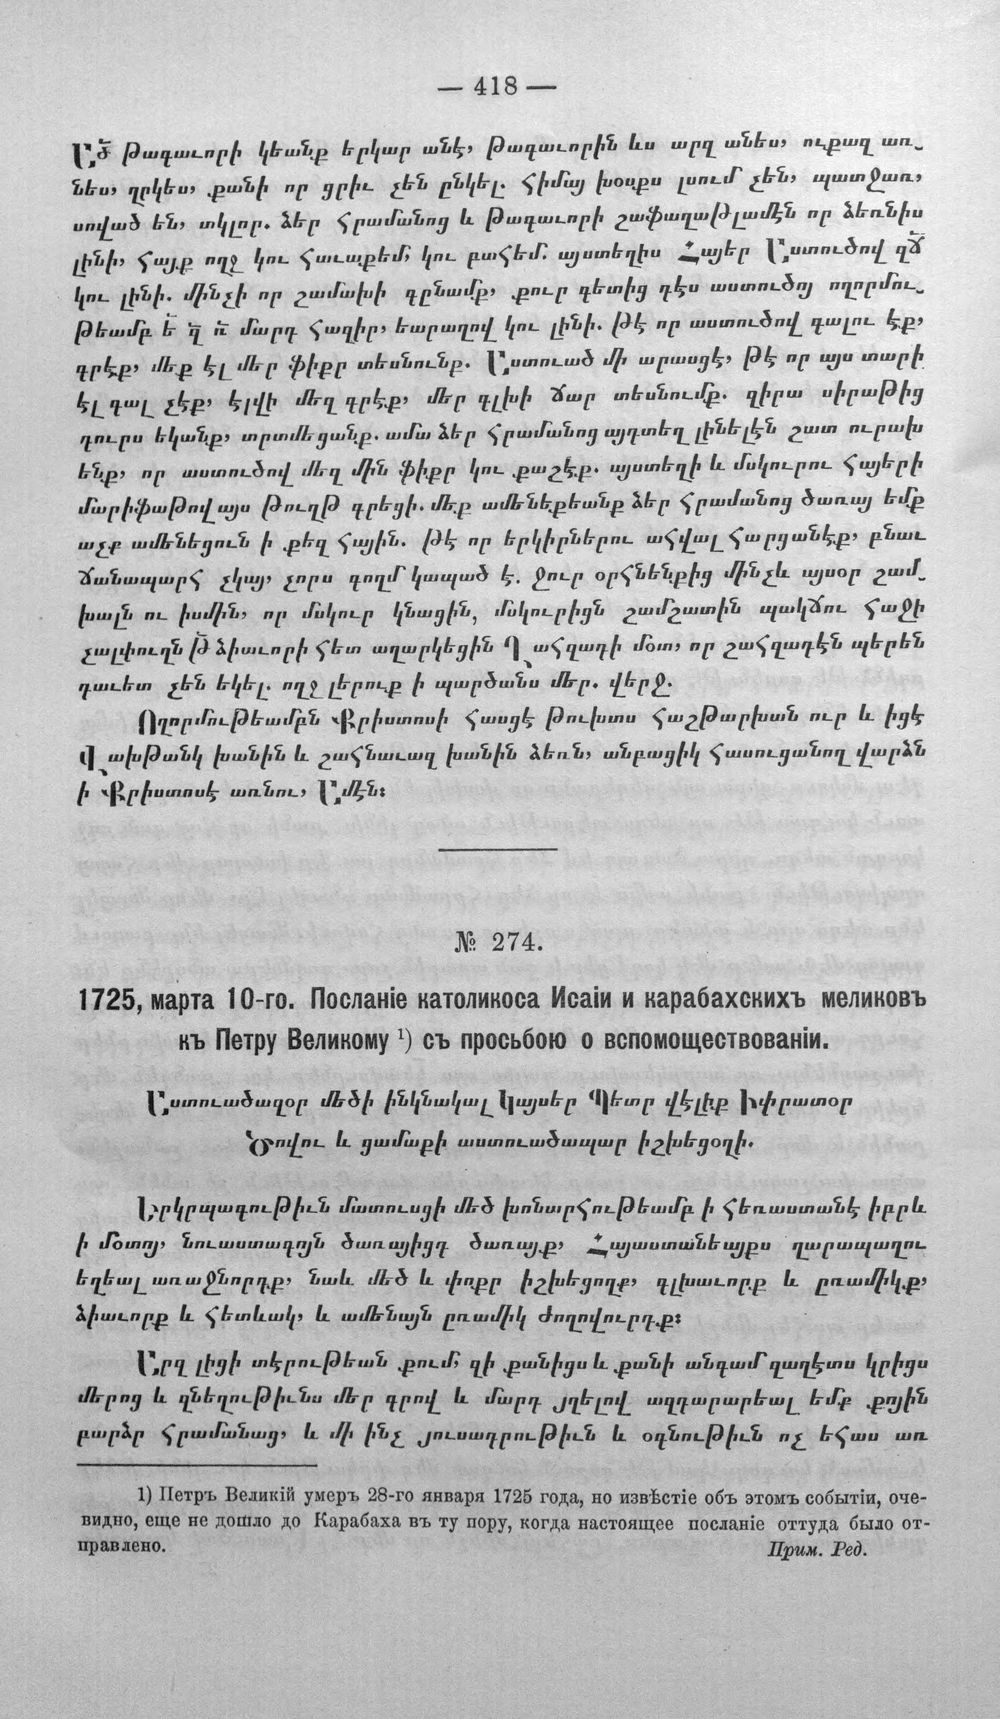 — 418 —
Ած թագաւորի կեանք երկար անէ, թագաւորին ևս արզ անես, ուքազ առ֊
նես, ղրկես, քանի որ ցրիւ չեն ընկել. հիմայ խօսքս լսում չեն, պատջառ,
սոված են, տկլոր. ձեր հրամանոց և թագաւորի շաֆաղաթլամէն որ ձեռնիս
լինի, հայք ողջ կու հաւաքեմ, կու բահեմ. այստեղիս Հայեր Աստուծով զճ
կու լինի. մինչի որ շամախի գընամք, քուր գետից դէս աստուծոյ ողորմու֊
թեամբ է  մարդ հազիր, եարաղով կու լինի. թէ որ աստուծով գալու էք,
գրէք, մեք էլ մեր ֆիքր տեսնունք. Աստուած մի արասցէ, թէ որ այս տարի
էլ գալ չէք, էլվի մեզ գրէք, մեր գլխի ճար տեսնումք. զիրա սիրաթից
դուրս եկանք, տրտմեցանք. ամա ձեր հրամանոց այդտեղ լինելէն շատ ուրախ
ենք, որ աստուծով մեզ մին ֆիքր կու քաշէք. այստեղի և մսկուրու հայերի
մարիֆաթով այս թուղթ գրեցի. մեք ամենեքեանք ձեր հրամանոց ծառայ եմք
աչք ամենեցուն ի քեզ հային. թէ որ երկիրներու ահվալ հարցանէք, բնաւ
ճանապարհ չկայ, չորս գողմ կապած է. ջուր օրհնենքից մինչև այսօր շամ֊
խալն ու խսմին, որ մսկուր կնացին, մսկուրիցն շամշատին պակճու հաջի
չալփուղն Թ ձիաւորի հետ աղարկեցին Շահզադի մօտ, որ շահզադէն պերեն
դաւետ չեն եկել. ողջ լերուք ի պարծանս մեր. վերջ.
Ողորմութեամբն Քրիստոսի հասցէ թուխտս հաշթարխան ուր և իցէ
Վախթանկ խանին և շահնաւազ խանին ձեռն, անբացիկ հասուցանող վարձն
ի Քրիստոսէ առնու, Ամէն։
№ 274.
1725, марта 10-го. Посланіе католикоса Исаіи и карабахскихъ меликовъ
къ Петру Великому ¹) съ просьбою о вспомоществованіи.
Աստուածազօր մեծի ինկնակալ Կայսեր Պետր վէլիք Իփրատօր
Ծովու և ցամաքի աստուածապար իշխեցօղի.
Երկրպագութիւն մատուսցի մեծ խոնարհութեամբ ի հեռաստանէ իբրև
ի մօտոյ, նուաստագոյն ծառայիցդ ծառայք, Հայաստանեայքս ղարապաղու
եղեալ առաջնորդք, նաև մեծ և փոքր իշխեցողք, գլխաւորք և ըռամիկք,
ձիաւորք և հետևակ, և ամենայն ըռամիկ ժողովուրդք։
Արզ լիցի տէրութեան քում, զի քանիցս և քանի անդամ զաղէտս կրիցս
մերոց և զնեղութիւնս մեր գրով և մարդ յղելով ազդարարեալ եմք քոյին
բարձր հրամանաց, և մի ինչ յուսադրութիւն և օգնութիւն ոչ եհաս առ
1) Петръ Великій умеръ 28-го января 1725 года, но извѣстіе объ этомъ событіи, оче-
видно, еще не дошло до Карабаха въ ту пору, когда настоящее посланіе оттуда было от-
правлено. Прим. Ред.